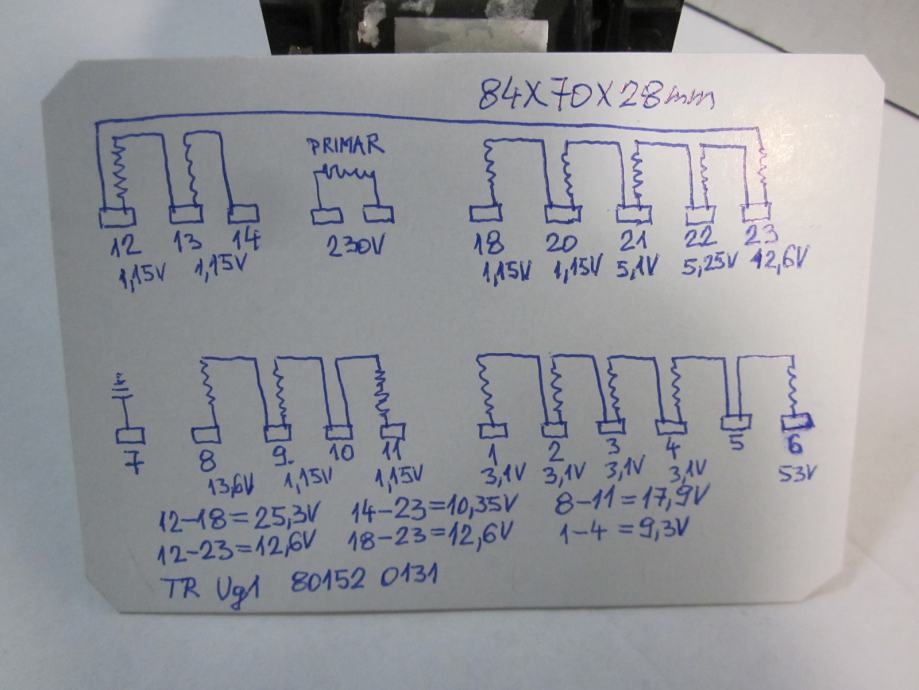 84X70X28mm
PRIMAR
12 13 14 230V 18 20 21 22 23
1,15V 1,15V 1,15V 1,15V 5,1V 5,25V 12,6V
7 8 9 10 11 1 2 3 4 5 6
13,6V 1,15V 1,15V 3,1V 3,1V 3,1V 3,1V 53V
12-18=25,3V 14-23=10,35V 8-11=17,9V
12-23=12,6V 18-23=12,6V 1-4=9,3V
TR Vg1 80152 0131